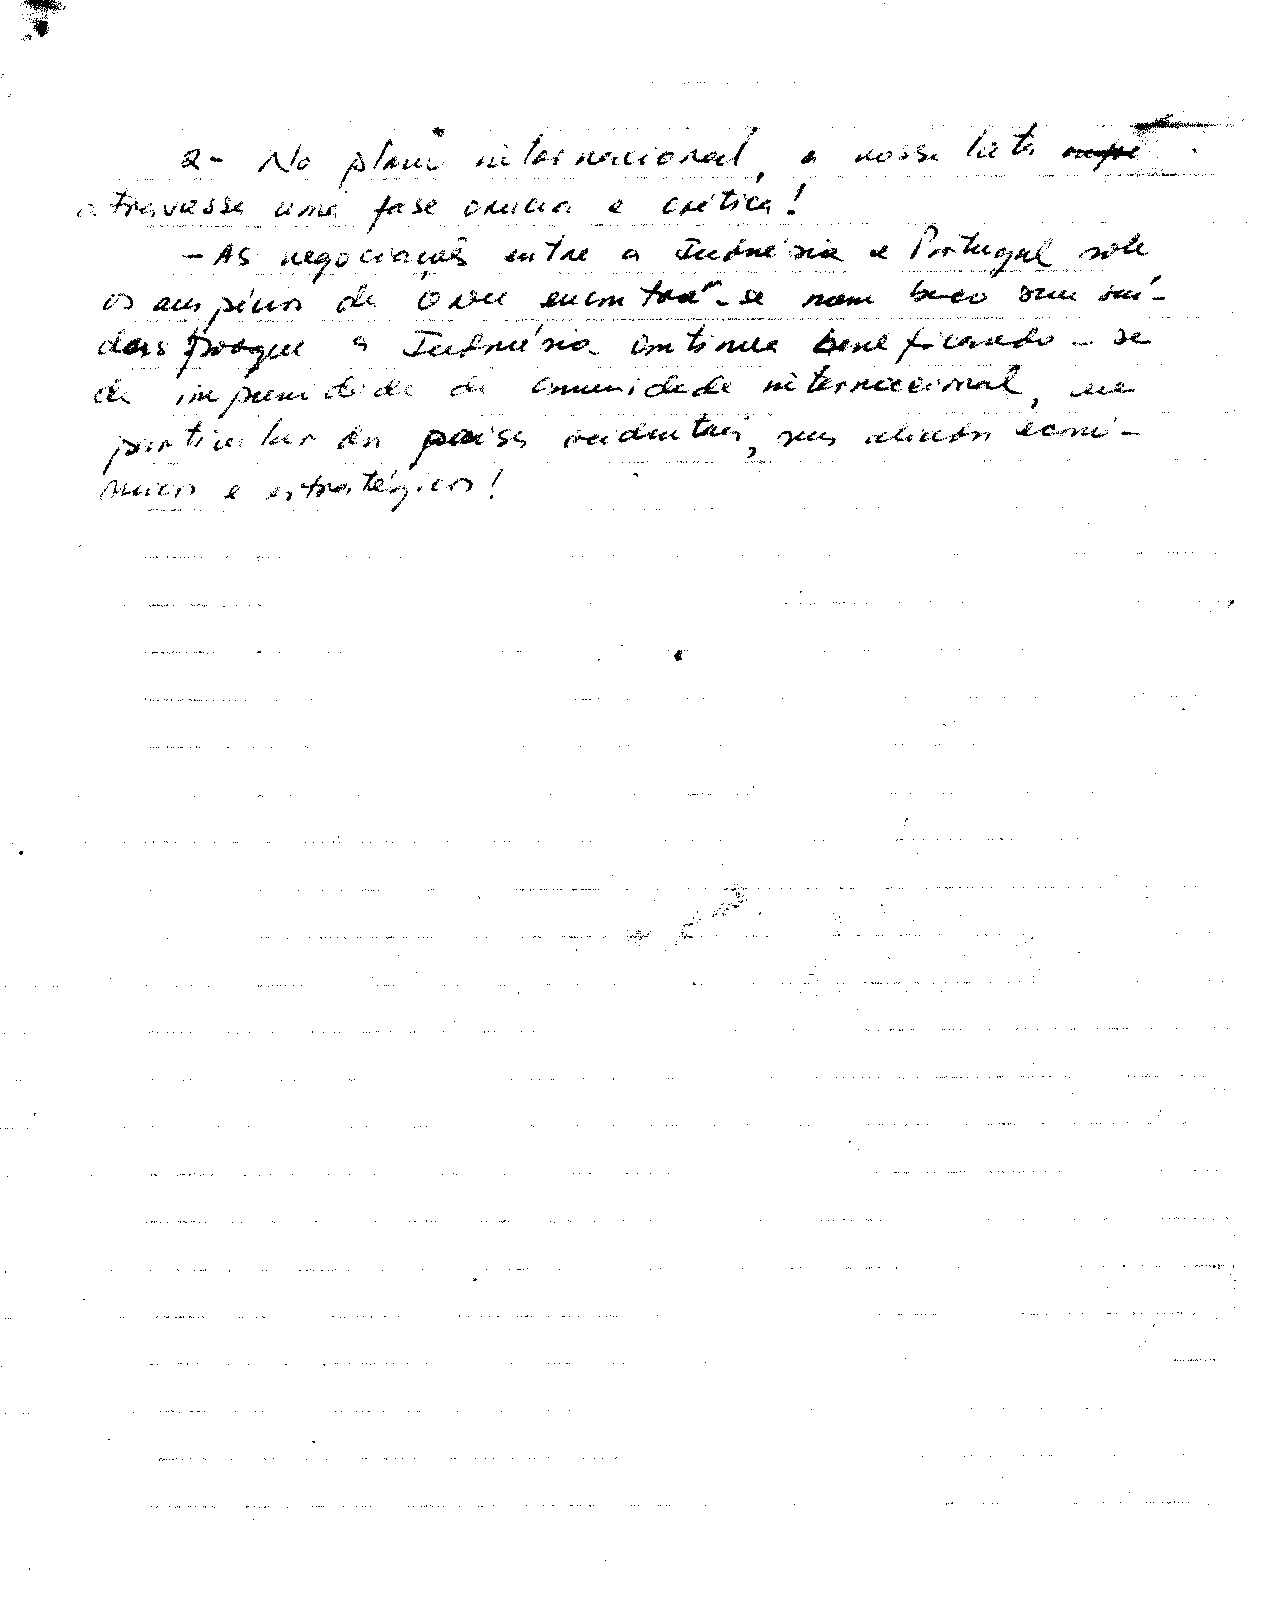 2- No plano internacional, a nossa luta
atravessa uma fase crucia e crítica!
- As negociações entre a Indonésia e Portugal sob
os auspícios da ONU encontra-se num beco sem saí-
das porque a Indonésia continua beneficando-se
da impunidade da comunidade internacional, em
particular dos países ocidentais, seus aliados econó-
micos e estratégicos!